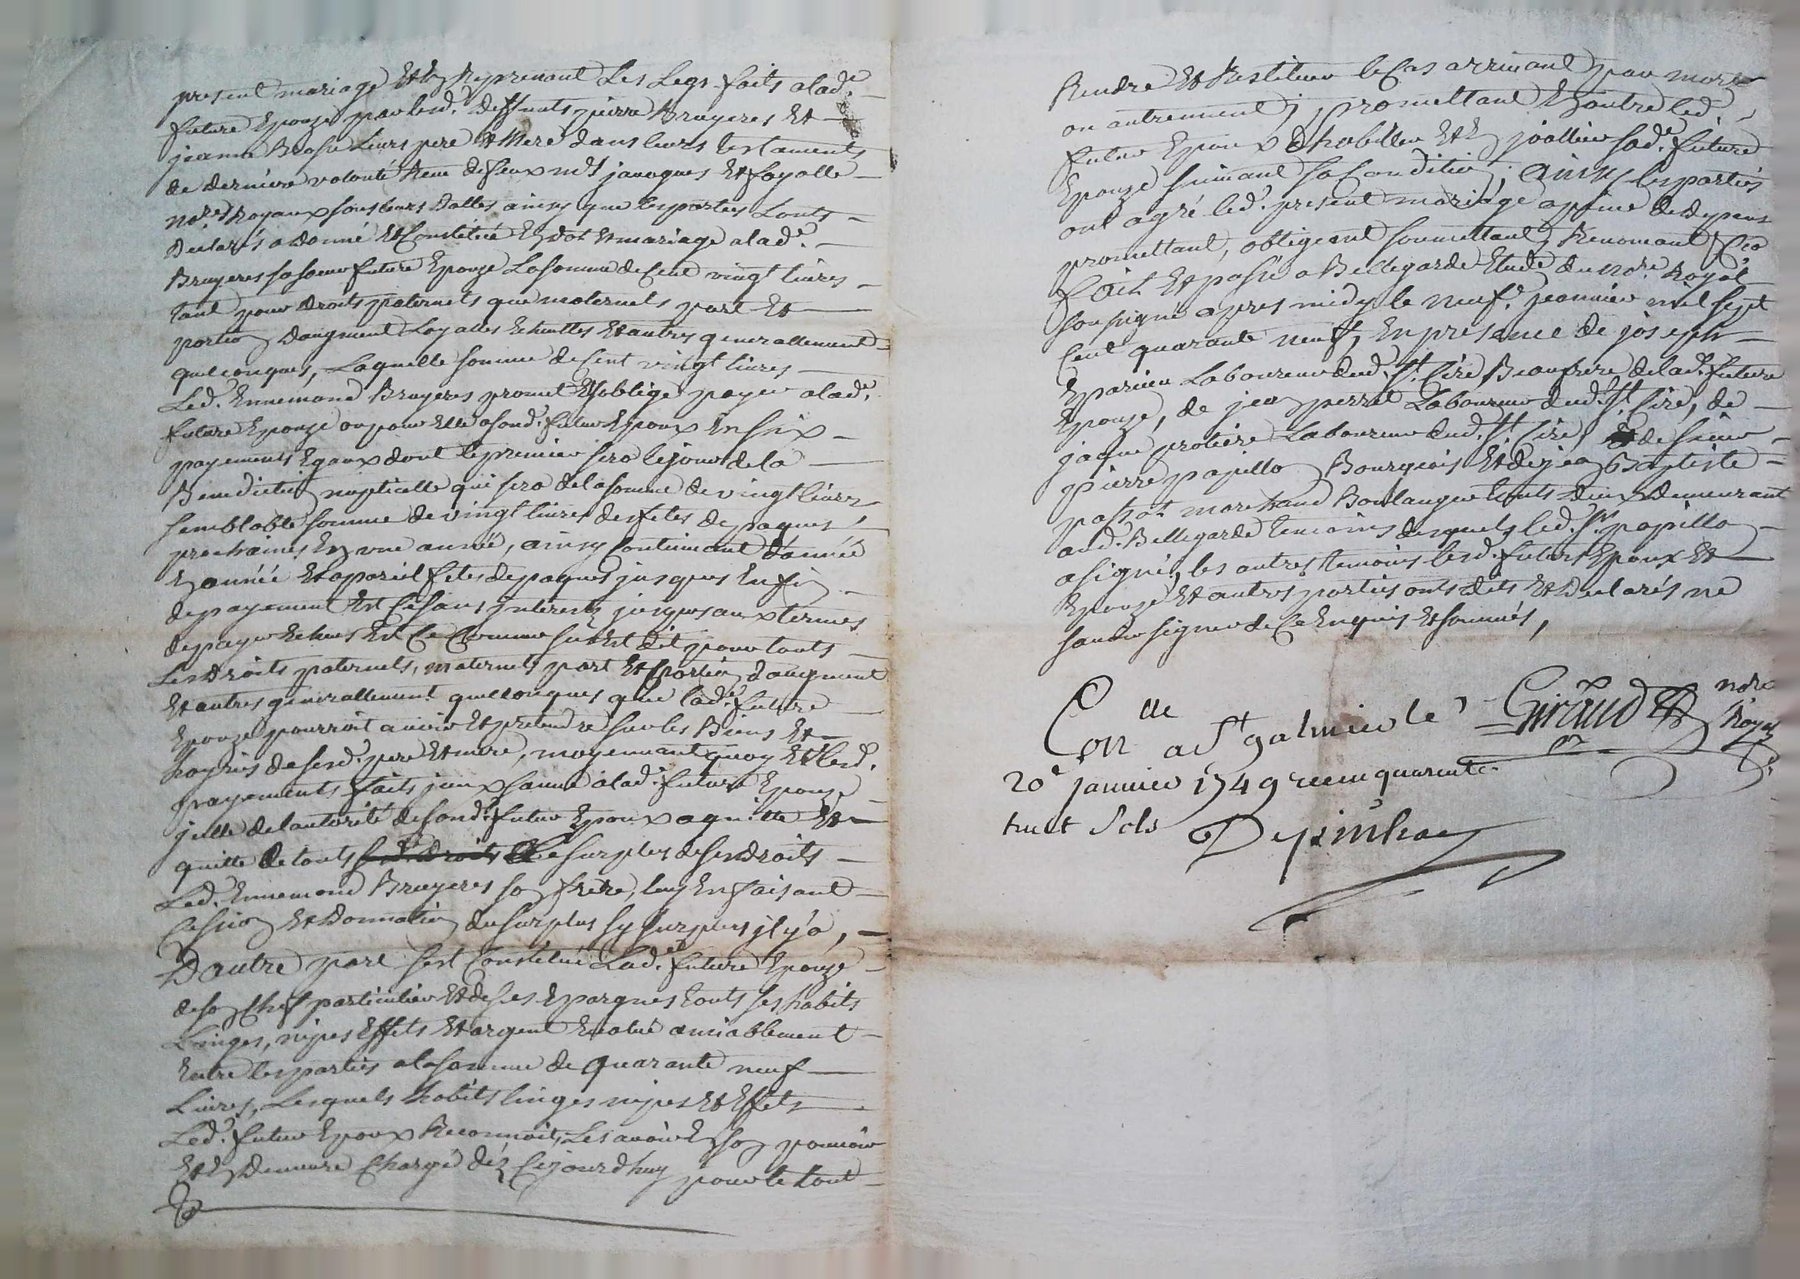 present mariage Et En Reprenant Les Legs faits alad.e
future Epouze par lesd.s deffunts pierre Bruyeres Et
jeanne leurs pere et Mere dans leurs testaments
de derniere volonté Reçu m.es janoques Et fayolle
no.res Royaux sous leurs dattes ainsy que les parties Lonts
declarés a donné Et Constitué En dot Et mariage alad.e
Bruyeres sa soeur future Epouze La somme de Cent vingt livres
tant pour droits paternels que maternels part Et
portion daugment Loyalles Echuttes Et autres generallement
quelconques, Laquelle somme de Cent vingt livres
Led. Ennemond Bruyeres promet Et soblige payer alad.e
future Epouze ou pour Elle a sond. futur Epoux En six
payements Egaux dont le premier sera le jour de la
Benediction nuptialle qui sera de la somme de vingt livres
semblable somme de vingt livres des fetes de paques
prochaines En une année, ainsy Continuant d'année
En année Et a pareil fetes de paques jusques En fin
de payement Et Ce sans jnterests jusques aux termes
de payer Echus Et Ce Comme sus Est dit pour touts
Les droits paternels, maternels part Et portion daugment
Et autres generallement quelconques que lad.e future
Epouze pourroit avoir Et pretendre sur les Biens Et
hoyries de sesd. pere Et mere, moyennant quoy Et lesd.
payements faits jceux sanne alad.e future Epouze
jcelle de lautorité de sond. futur Epoux a quitté Et
quitte de touts ses droits Le surplus de ses droits
Led. Ennemond Bruyeres son frere, luy En faisant
Cession Et donnation du surplus sy surplus jl y a,
D autre part sest Constitué Lad.e future Epouze
de son Chef particulier Et de ses Epargnes touts ses habits
Linges, nipes Effets Et argent Evalué amiablement
Entre les parties a la somme de quarante neuf
Livres, Lesquels habits linges nipes Et Effets
Led. futur Epoux Reconnoit Les avoir En son pouvoir
Et En demeure Chargé déz Cejourdhuy pour le tout
Rendre Et Restituer le Cas arrivant par mort
ou autrement, promettant En outre led.
futur Epoux d'habiller Et En joallier sad.e future
Epouze suivant sa Condition; ainsy les parties
ont agré led. present mariage a peine de depens
promettant, obligeant soumettant, Renonçant
Fait Et passé a Bellegarde Etude du no.re Royal
soussigné apres midy le neuf.e janvier mil sept
Cent quarante neuf, En presence de joseph
Eparieu Laboureur dud. St Cire Beaufrere de lad.e future
Epouze, de jean perret Laboureur dud. St Cire, de
jaque protiere Laboureur dud. St Cire de sieur
pierre papillon Bourgeois Et de jean Baptiste
passot marchand Boulanger touts deux demeurant
aud. Bellegarde temoins desquels led. Sr papillon
a signé, les autres temoins lesd. futurs Epoux Et
Epouze Et autres parties onts dits Et declarés ne
savoir signer de Ce Enquis Et sommés,
Con.lle a St galmier le Giraud no.re Royal
20e janvier 1749 reçu quarente
huit sols Depinhac